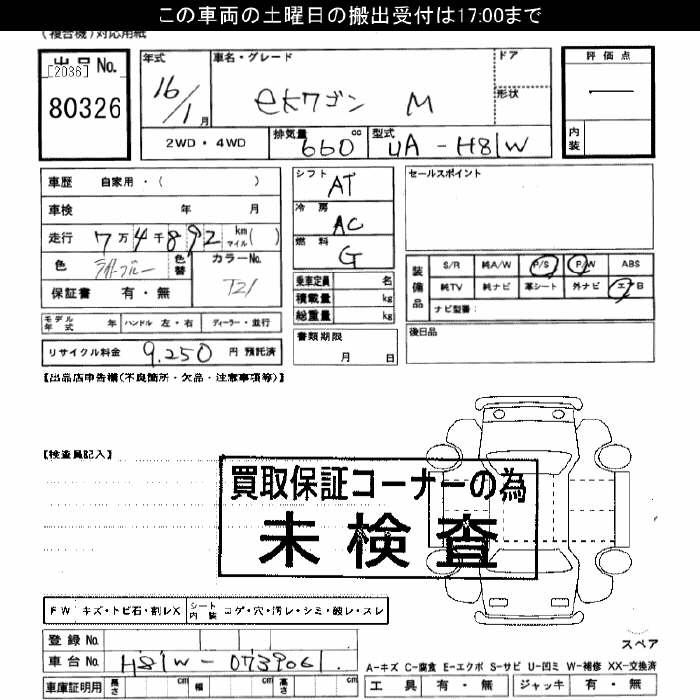 この車両の土曜日の搬出受付は17:00まで
(複合機)対応用紙
出品No. [2036] 80326
年式 16/1月
車名・グレード ekワゴン M
ドア
形状
評価点 —
内装
2WD・4WD
排気量 660 cc
型式 UA-H81W
車歴 自家用・( )
車検 年 月
走行 7万4千892 km マイル( )
色 ライトブルー 色替
カラーNo. T21
保証書 有・無
シフト AT
冷房 AC
燃料 G
乗車定員 名
積載量 kg
総重量 kg
セールスポイント
装備品
S/R 純A/W P/S P/W ABS
純TV 純ナビ 革シート 外ナビ エアB
ナビ型番:
モデル年式 年 ハンドル 左・右 ディーラー・並行
書類期限 月 日
後日品
リサイクル料金 9,250 円 預託済
【出品店申告欄(不良箇所・欠品・注意事項等)】
【検査員記入】
買取保証コーナーの為
未検査
FW キズ・トビ石・割レX シート内装 コゲ・穴・汚レ・シミ・破レ・スレ
登録No.
車台No. H81W-0739061
車庫証明用 長さ cm 幅 cm 高さ cm
スペア
A-キズ C-腐食 E-エクボ S-サビ U-凹ミ W-補修 XX-交換済
工具 有・無 ジャッキ 有・無